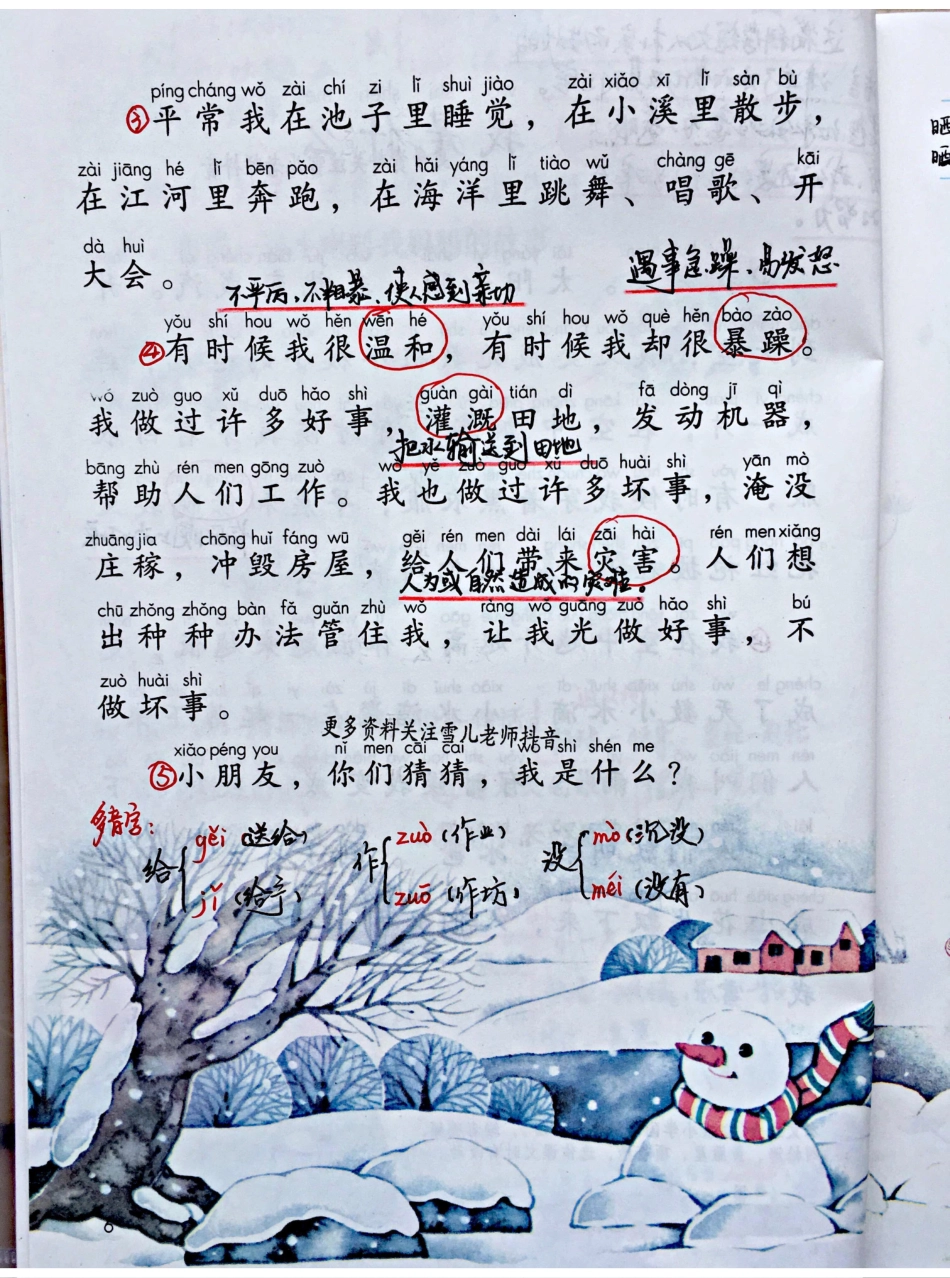 píng cháng wǒ zài chí zi lǐ shuì jiào zài xiǎo xī lǐ sàn bù
③平常我在池子里睡觉，在小溪里散步，
zài jiāng hé lǐ bēn pǎo zài hǎi yáng lǐ tiào wǔ chàng gē kāi
在江河里奔跑，在海洋里跳舞、唱歌、开
dà huì
大会。
遇事急躁、易发怒
不严厉，不粗暴、使人感到亲切
yǒu shí hou wǒ hěn wēn hé yǒu shí hou wǒ què hěn bào zào
④有时候我很温和，有时候我却很暴躁。
wǒ zuò guo xǔ duō hǎo shì guàn gài tián dì fā dòng jī qì
我做过许多好事，灌溉田地，发动机器，
把水输送到田地
bāng zhù rén men gōng zuò wǒ yě zuò guo xǔ duō huài shì yān mò
帮助人们工作。我也做过许多坏事，淹没
zhuāng jia chōng huǐ fáng wū gěi rén men dài lái zāi hài rén men xiǎng
庄稼，冲毁房屋，给人们带来灾害。人们想
人为或自然造成的灾难。
chū zhǒng zhǒng bàn fǎ guǎn zhù wǒ ràng wǒ guāng zuò hǎo shì bú
出种种办法管住我，让我光做好事，不
zuò huài shì
做坏事。
更多资料关注雪儿老师抖音
xiǎo péng you nǐ men cāi cai wǒ shì shén me
⑤小朋友，你们猜猜，我是什么？
多音字：
给 gěi (送给) 作 zuò (作业) 没 mò (沉没)
jǐ (给予) zuō (作坊) méi (没有)
6